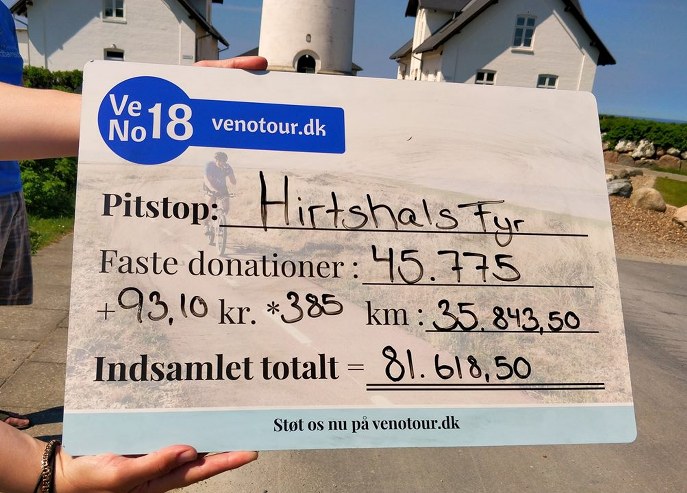 Ve No 18 venotour.dk
Pitstop: Hirtshals Fyr
Faste donationer: 45.775
+93,10 kr. *385 km: 35.843,50
Indsamlet totalt = 81.618,50
Støt os nu på venotour.dk